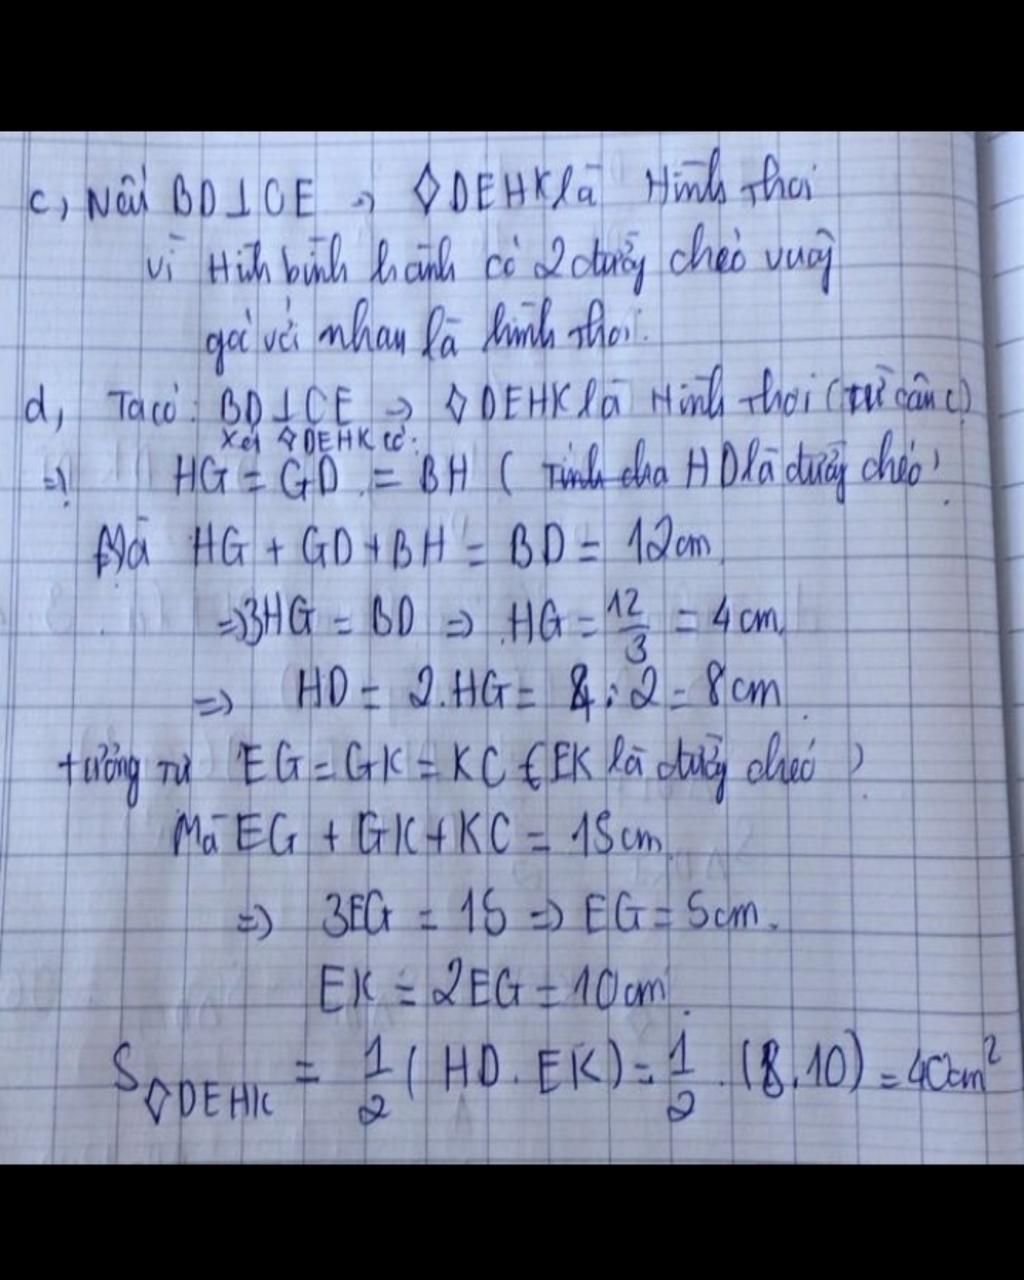 c, Nếu BD⊥CE => ◇DEHK là Hình thoi
vì Hình bình hành có 2 đường chéo vuông
góc với nhau là hình thoi.
d, Ta có: BD⊥CE => ◇DEHK là Hình thoi (từ câu c)
Xét ◇DEHK có:
=> HG = GD = BH ( HD là đường chéo)
Mà HG + GD + BH = BD = 12cm
=> 3HG = BD => HG = 12/3 = 4cm.
=> HD = 2.HG = 4.2 = 8cm.
tương tự EG = GK = KC (EK là đường chéo)
Mà EG + GK + KC = 15cm.
=> 3EG = 15 => EG = 5cm.
EK = 2EG = 10cm.
S◇DEHK = 1/2 ( HD . EK) = 1/2 . (8.10) = 40cm²